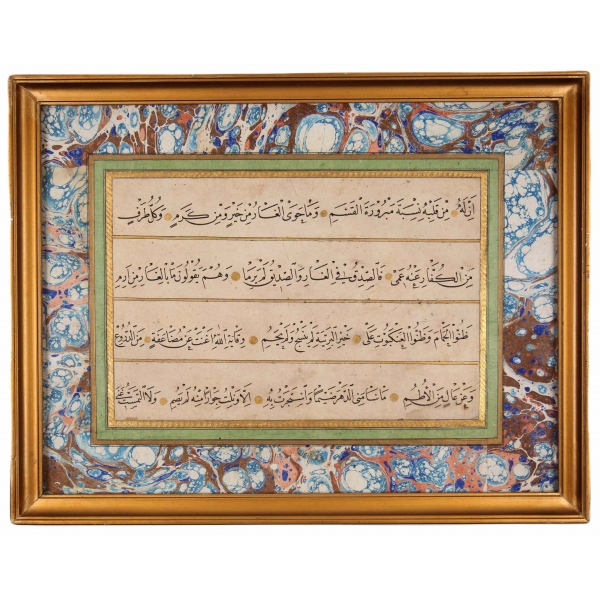 ان له من قلبه نسبة مبرورة القسم وما حوى الغار من خير ومن كرم وكل طرف
من الكفار عنه عمي فالصدق في الغار والصديق لم يرما وهم يقولون ما بالغار من ارم
ظنوا الحمام وظنوا العنكبوت على خير البرية لم تنسج ولم تحم وقاية الله اغنت عن مضاعفة من الدروع
وعن عال من الاطم ما سامني الدهر ضيما واستجرت به الا ونلت جوارا منه لم يضم ولا التمست غنى